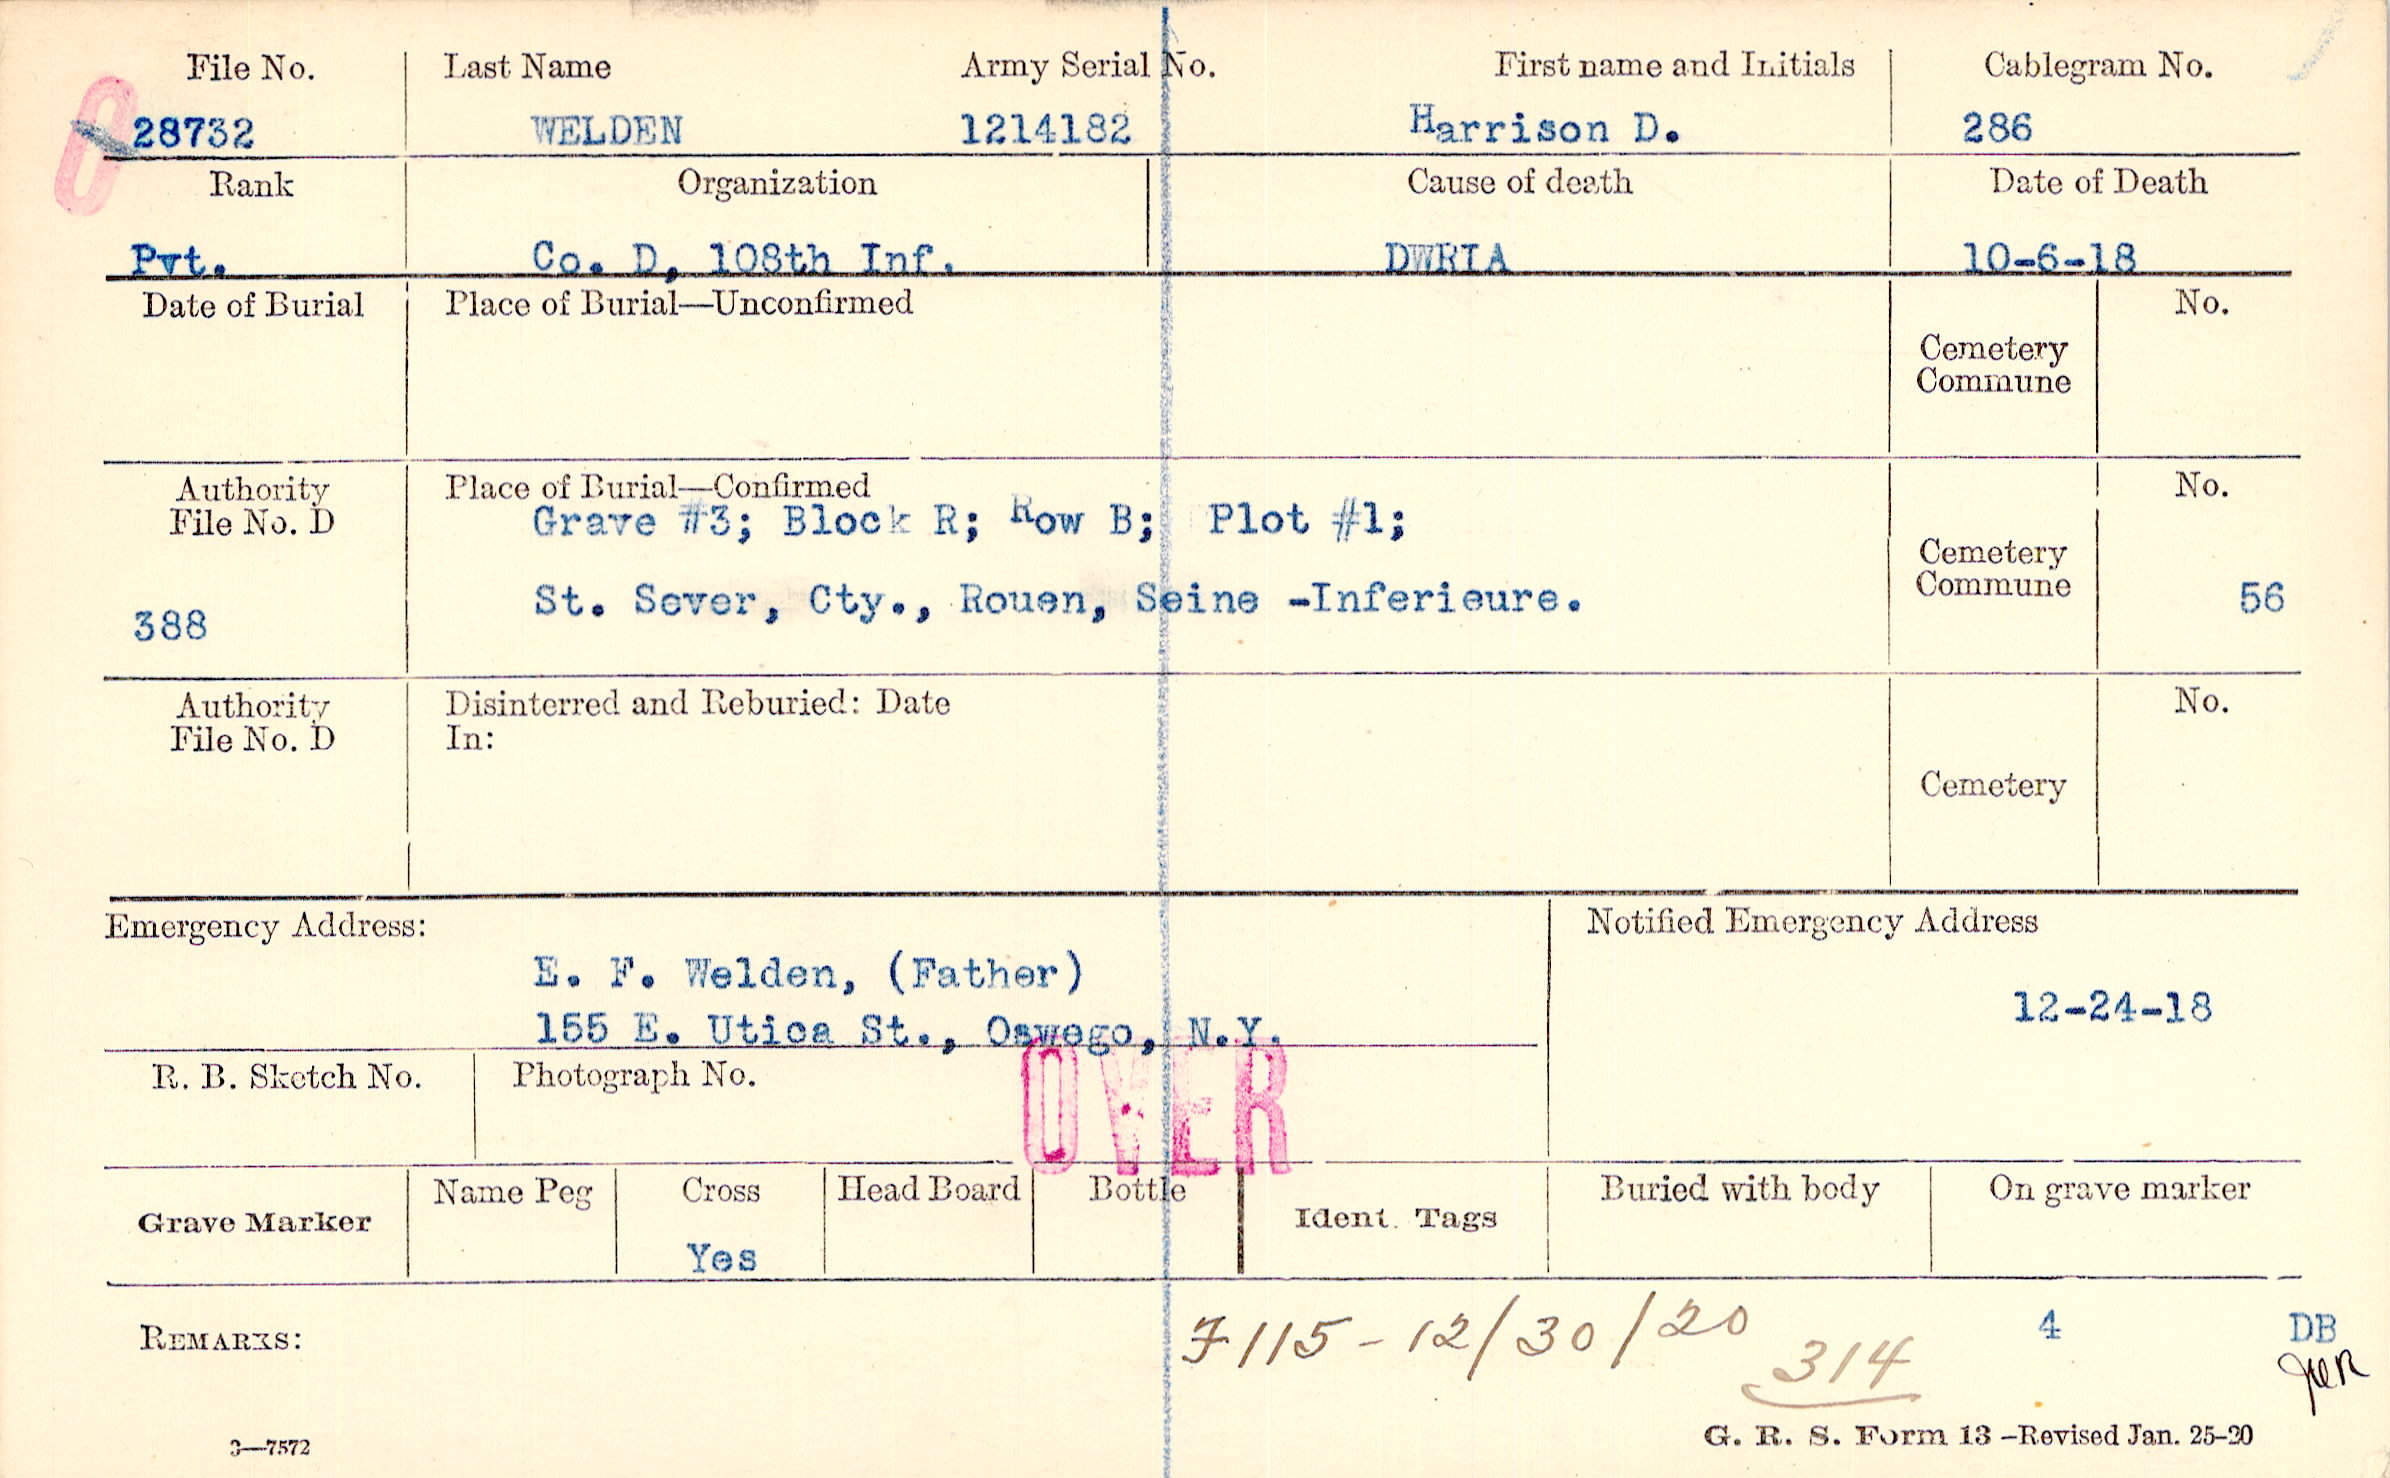 File No. Last Name Army Serial No. First name and Initials Cablegram No.
28732 WELDEN 1214182 Harrison D. 286
Rank Organization Cause of death Date of Death
Pvt. Co. D, 108th Inf. DWRIA 10-6-18
Date of Burial Place of Burial—Unconfirmed No.
Cemetery
Commune
Authority Place of Burial—Confirmed No.
File No. D Grave #3; Block R; Row B; Plot #1;
Cemetery
Commune
388 St. Sever, Cty., Rouen, Seine -Inferieure. 56
Authority Disinterred and Reburied: Date No.
File No. D In:
Cemetery
Emergency Address: Notified Emergency Address
E. F. Welden, (Father)
12-24-18
155 E. Utica St., Oswego, N.Y.
R. B. Sketch No. Photograph No.
OVER
Grave Marker Name Peg Cross Head Board Bottle Ident. Tags Buried with body On grave marker
Yes
REMARKS: 7115-12/30/20 4 DB
314
3—7572 G. R. S. Form 13 –Revised Jan. 25-20